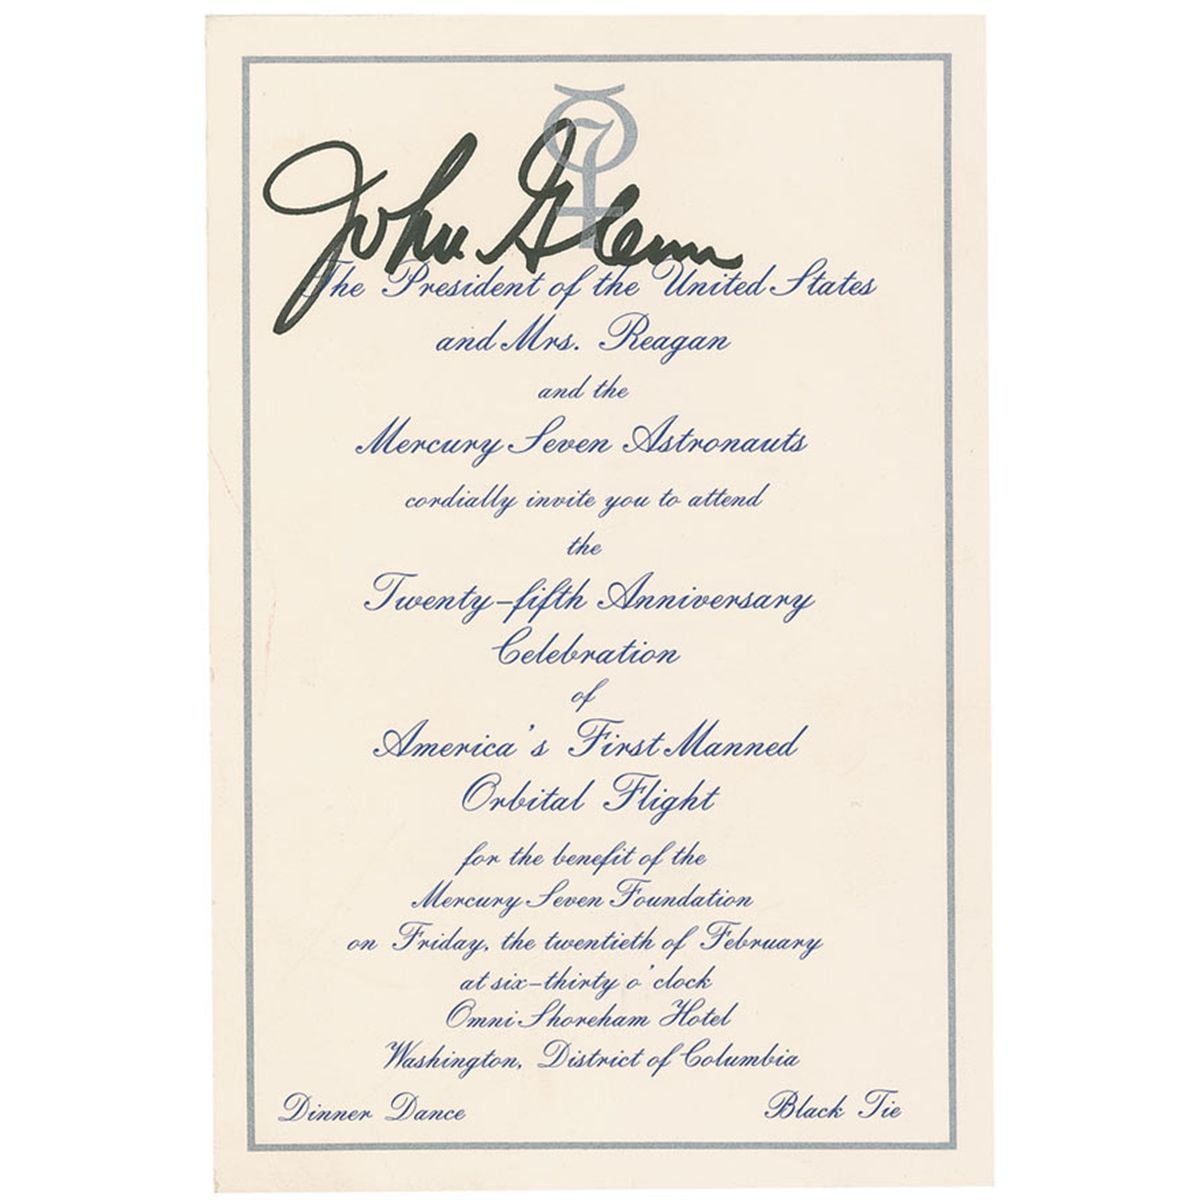 7
John Glenn
The President of the United States
and Mrs. Reagan
and the
Mercury Seven Astronauts
cordially invite you to attend
the
Twenty-fifth Anniversary
Celebration
of
America's First Manned
Orbital Flight
for the benefit of the
Mercury Seven Foundation
on Friday, the twentieth of February
at six-thirty o'clock
Omni Shoreham Hotel
Washington, District of Columbia
Dinner Dance
Black Tie